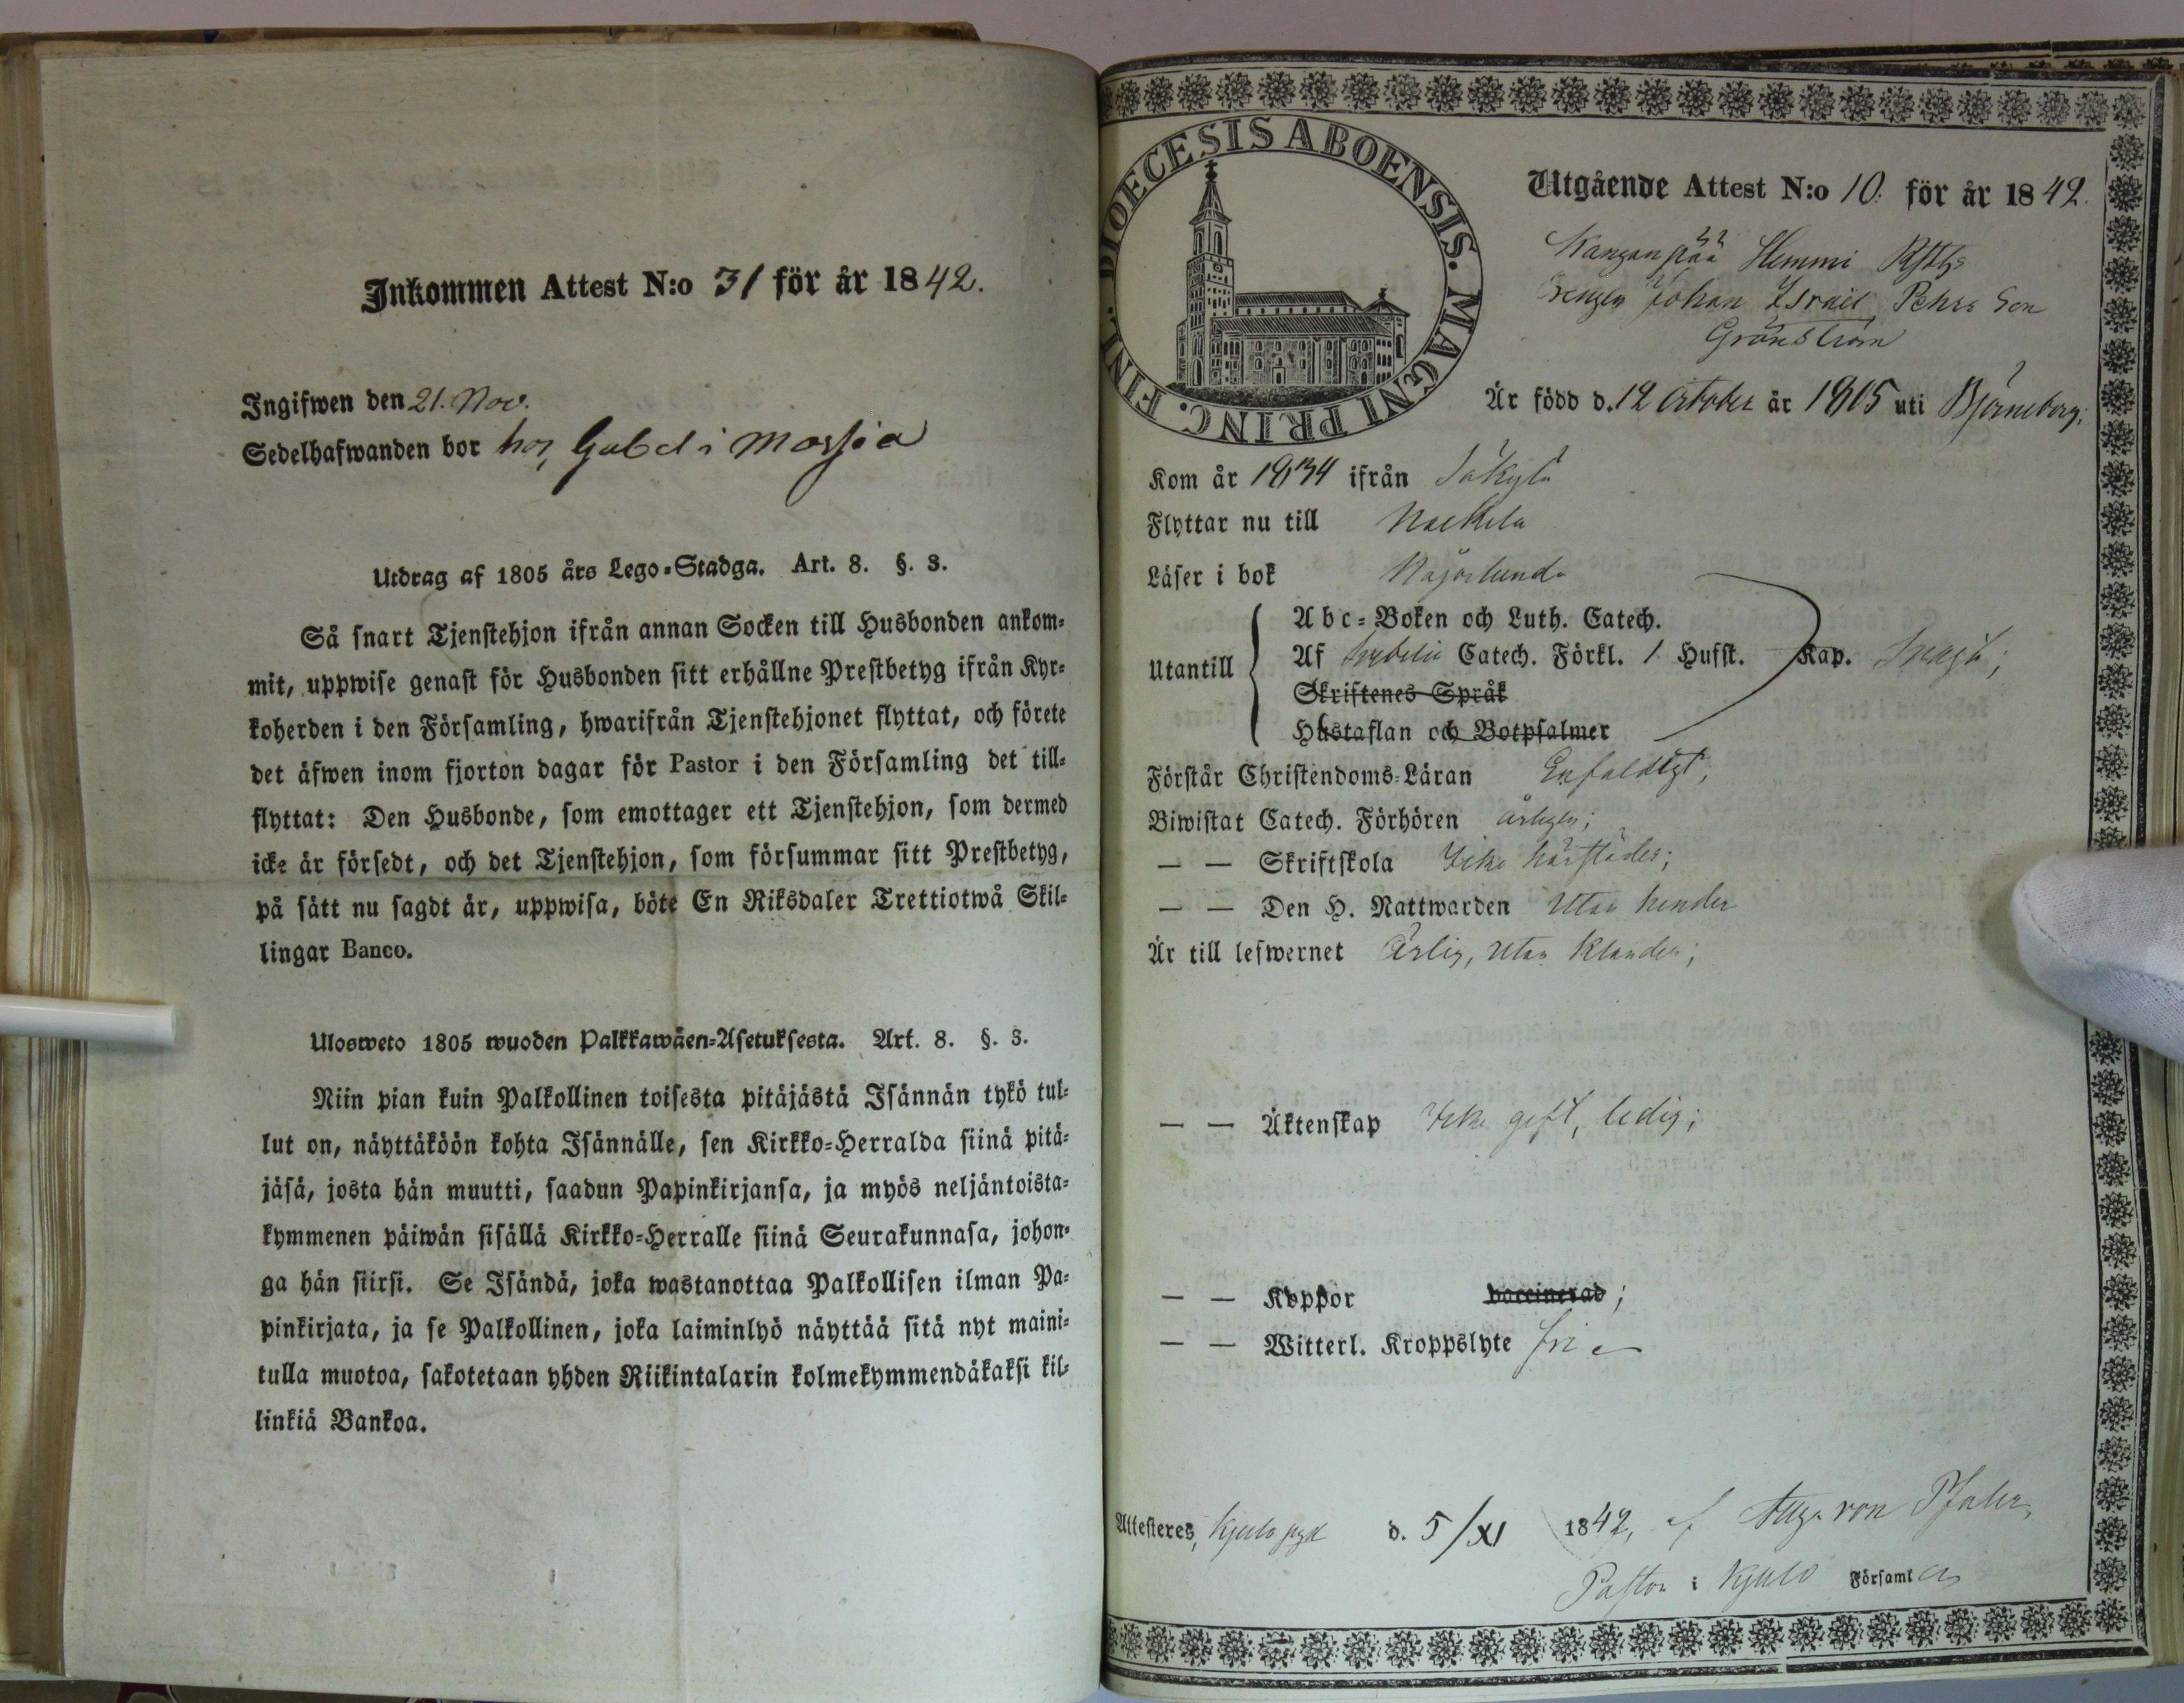 Inkommen Attest N:o 31 för år 1842.
Ingifwen den 21. Nov.
Sedelhafwanden bor hos Gabel i
Utdrag af 1805 års Lego-Stadga. Art. 8. §. 3.
Så snart Tjenstehjon ifrån annan Socken till Husbonden ankom-
mit, uppwise genast för Husbonden sitt erhållne Prestbetyg ifrån Kyr-
koherden i den Församling, hwarifrån Tjenstehjonet flyttat, och förete
det äfwen inom fjorton dagar för Pastor i den Församling det till-
flyttat: Den Husbonde, som emottager ett Tjenstehjon, som dermed
icke är försedt, och det Tjenstehjon, som försummar sitt Prestbetyg,
på sätt nu sagdt är, uppwisa, böte En Riksdaler Trettiotwå Skil-
lingar Banco.
Ulosweto 1805 wuoden Palkkawäen-Asetuksesta. Art. 8. §. 3.
Niin pian kuin Palkollinen toisesta pitäjästä Isännän tykö tul-
lut on, näyttäköön kohta Isännälle, sen Kirkko-Herralda siinä pitä-
jäsä, josta hän muutti, saadun Papinkirjansa, ja myös neljäntoista-
kymmenen päiwän sisällä Kirkko-Herralle siinä Seurakunnasa, johon-
ga hän siirsi. Se Isändä, joka wastanottaa Palkollisen ilman Pa-
pinkirjata, ja se Palkollinen, joka laiminlyö näyttää sitä nyt maini-
tulla muotoa, sakotetaan yhden Riikintalarin kolmekymmendäkaksi kil-
linkiä Bankoa.
DIOECESIS ABOENSIS. MAGNI PRINC. FINL.
Utgående Attest N:o 10. för år 1842.
Kanganpää Hemmi
Drengen Johan Israel Pehrs Son
Grönström
Är född d. 12 October år 1805 uti Björneborg;
Kom år 1834 ifrån Säkylä
Flyttar nu till Nackila
Läser i bok Någorlunda
Utantill
Abc-Boken och Luth. Catech.
Af Catech. Förkl. 1 Hufst. Kap. Svagt;
Skriftenes Språk
Hustaflan och Botpsalmer
Förstår Christendoms-Läran Enfaldigt,
Biwistat Catech. Förhören årligen;
— — Skriftskola Icke härstädes;
— — Den H. Nattwarden Utan hinder
Är till lefwernet Ärlig, utan klander;
— — Äktenskap Icke gift, ledig;
— — Koppor vaccinerad;
— — Witterl. Kroppslyte fri
Attesteres, Kjulo d. 5/XI 1842, af Aug. von Pfaler
Pastor i Kjulo Församl